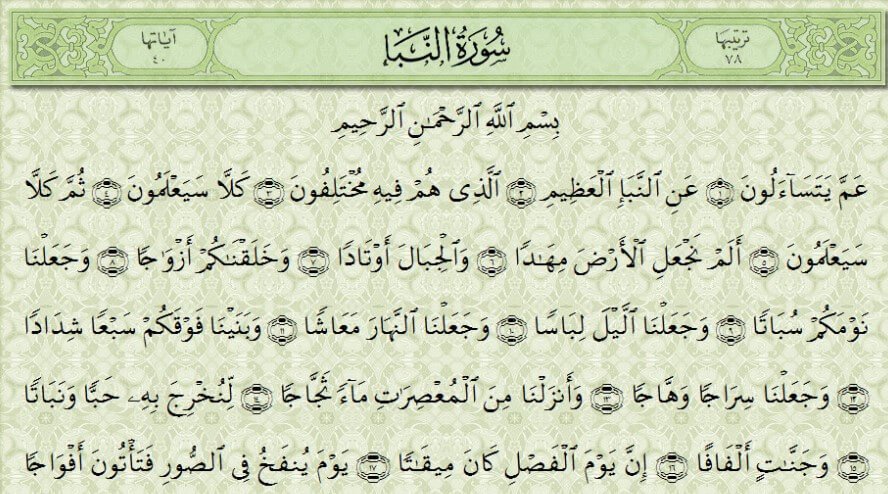 ترتيبها
٧٨
سُورَةُ النَّبَإِ
آياتها
٤٠
بِسْمِ ٱللَّهِ ٱلرَّحْمَٰنِ ٱلرَّحِيمِ
عَمَّ يَتَسَآءَلُونَ ١ عَنِ ٱلنَّبَإِ ٱلْعَظِيمِ ٢ ٱلَّذِى هُمْ فِيهِ مُخْتَلِفُونَ ٣ كَلَّا سَيَعْلَمُونَ ٤ ثُمَّ كَلَّا
سَيَعْلَمُونَ ٥ أَلَمْ نَجْعَلِ ٱلْأَرْضَ مِهَٰدًا ٦ وَٱلْجِبَالَ أَوْتَادًا ٧ وَخَلَقْنَٰكُمْ أَزْوَٰجًا ٨ وَجَعَلْنَا
نَوْمَكُمْ سُبَاتًا ٩ وَجَعَلْنَا ٱلَّيْلَ لِبَاسًا ١٠ وَجَعَلْنَا ٱلنَّهَارَ مَعَاشًا ١١ وَبَنَيْنَا فَوْقَكُمْ سَبْعًا شِدَادًا
١٢ وَجَعَلْنَا سِرَاجًا وَهَّاجًا ١٣ وَأَنزَلْنَا مِنَ ٱلْمُعْصِرَٰتِ مَآءً ثَجَّاجًا ١٤ لِّنُخْرِجَ بِهِۦ حَبًّا وَنَبَاتًا
١٥ وَجَنَّٰتٍ أَلْفَافًا ١٦ إِنَّ يَوْمَ ٱلْفَصْلِ كَانَ مِيقَٰتًا ١٧ يَوْمَ يُنفَخُ فِى ٱلصُّورِ فَتَأْتُونَ أَفْوَاجًا